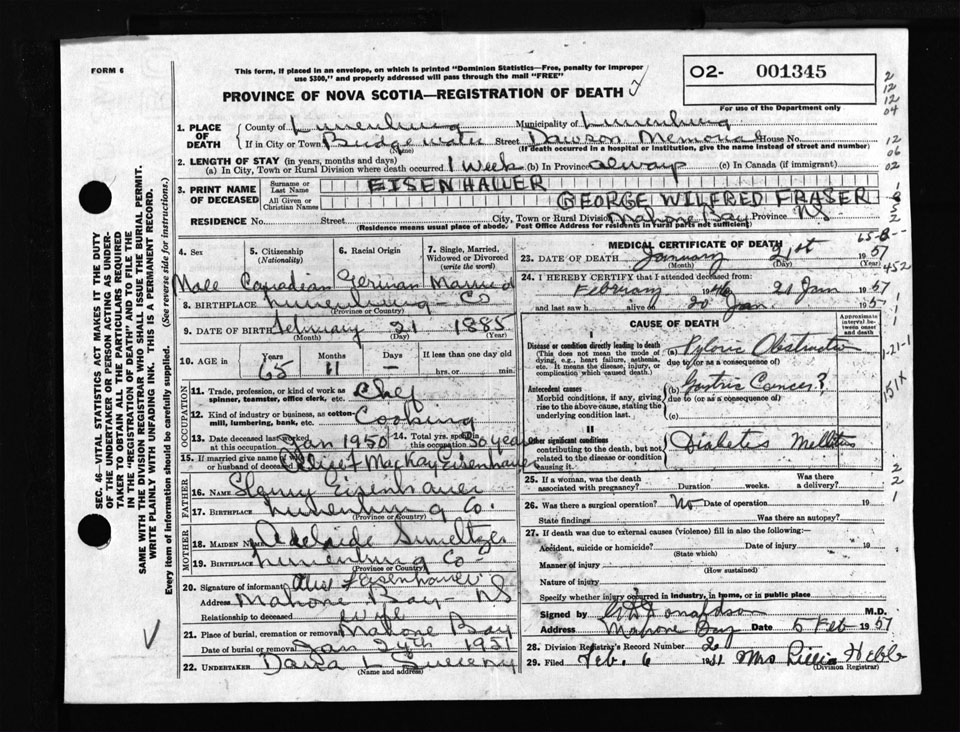 FORM 6
This form, if placed in an envelope, on which is printed "Dominion Statistics—Free, penalty for improper
use $300," and properly addressed will pass through the mail "FREE"
PROVINCE OF NOVA SCOTIA—REGISTRATION OF DEATH
O2- 001345
For use of the Department only
2
12
12
04
12
06
02
1. PLACE OF DEATH
County of Lunenburg Municipality of Lunenburg
If in City or Town Bridgewater (Name) Street Dawson Memorial House No.
(If death occurred in a hospital or institution, give the name instead of street and number)
2. LENGTH OF STAY (in years, months and days)
(a) In City, Town or Rural Division where death occurred 1 Week (b) In Province always (c) In Canada (if immigrant)
3. PRINT NAME OF DECEASED
Surname or Last Name EISENHAUER
All Given or Christian Names GEORGE WILFRED FRASER
RESIDENCE No. Street City, Town or Rural Division Mahone Bay Province NS
(Residence means usual place of abode. Post Office Address for residents in rural parts not sufficient)
4. Sex
Male
5. Citizenship (Nationality)
Canadian
6. Racial Origin
German
7. Single, Married, Widowed or Divorced (write the word)
Married
8. BIRTHPLACE Lunenburg - Co
(Province or Country)
9. DATE OF BIRTH February 21 1885
(Month) (Day) (Year)
10. AGE in Years Months Days If less than one day old
65 11 — hrs. or min.
OCCUPATION
11. Trade, profession, or kind of work as spinner, teamster, office clerk, etc. Chef
12. Kind of industry or business, as cotton-mill, lumbering, bank, etc. Cooking
13. Date deceased last worked at this occupation Jan 1950 14. Total yrs. spent in this occupation 30 years
15. If married give name of wife or husband of deceased Alice F MacKay Eisenhauer
FATHER
16. NAME Henry Eisenhauer
17. BIRTHPLACE Lunenburg Co.
(Province or Country)
MOTHER
18. MAIDEN NAME Adelaide Smeltzer
19. BIRTHPLACE Lunenburg Co
(Province or Country)
20. Signature of informant Alice F Eisenhauer
Address Mahone Bay - NS
Relationship to deceased wife
21. Place of burial, cremation or removal Mahone Bay
Date of burial or removal Jan 24th 1951
22. UNDERTAKER
(Name and address)
MEDICAL CERTIFICATE OF DEATH
23. DATE OF DEATH January 21st 1951
(Month) (Day) (Year)
24. I HEREBY CERTIFY that I attended deceased from:
February 1946 21 Jan 1951
and last saw h alive on 20 Jan 1951
CAUSE OF DEATH
Approximate interval between onset and death
I
Disease or condition directly leading to death (a) Pyloric Obstruction
(This does not mean the mode of dying, e.g., heart failure, asthenia, etc. It means the disease, injury, or complication which caused death.)
due to (or as a consequence of)
Antecedent causes (b) Gastric Cancer?
Morbid conditions, if any, giving rise to the above cause, stating the underlying condition last.
due to (or as a consequence of)
(c)
II
Other significant conditions contributing to the death, but not related to the disease or condition causing it.
Diabetes Mellitus
151X
25. If a woman, was the death associated with pregnancy? Duration weeks. Was there a delivery?
26. Was there a surgical operation? No Date of operation 19
State findings Was there an autopsy?
27. If death was due to external causes (violence) fill in also the following:
Accident, suicide or homicide? Date of injury 19
(State which)
Manner of injury
(How sustained)
Nature of injury
Specify whether injury occurred in industry, in home, or in public place
Signed by Donaldson M.D.
Address Mahone Bay Date 5 Feb 1951
28. Division Registrar's Record Number 2
29. Filed Feb. 6 1951 Mrs Lillia Hebb
(Division Registrar)
SEC. 46—VITAL STATISTICS ACT MAKES IT THE DUTY
OF THE UNDERTAKER OR PERSON ACTING AS UNDER-
TAKER TO OBTAIN ALL THE PARTICULARS REQUIRED
IN THE "REGISTRATION OF DEATH" AND TO FILE THE
SAME WITH THE DIVISION REGISTRAR WHO SHALL ISSUE THE BURIAL PERMIT.
WRITE PLAINLY WITH UNFADING INK. THIS IS A PERMANENT RECORD.
Every item of information should be carefully supplied. (See reverse side for instructions.)